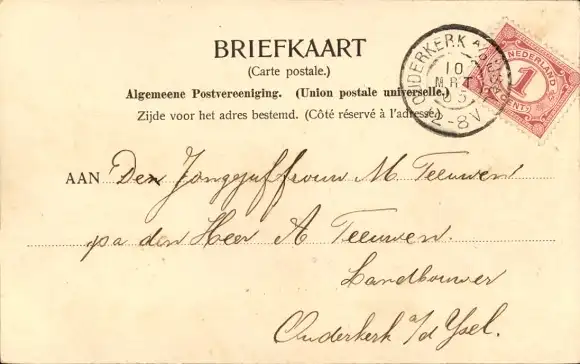 BRIEFKAART
(Carte postale.)
Algemeene Postvereeniging. (Union postale universelle.)
Zijde voor het adres bestemd. (Côté réservé à l'adresse.)
OUDERKERK A/D
10
MRT
05
12-8V
NEDERLAND
1
CENT
AAN Den Jongejuffrouw M. Teeuwen
pa den Heer A Teeuwen.
Landbouwer
Ouderkerk a/d Ysel.